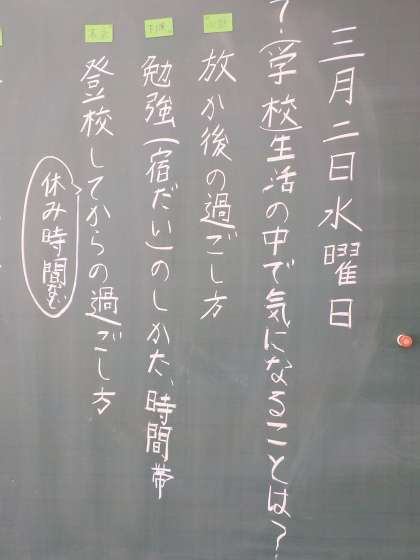 三月二日水曜日
?(学校)生活の中で気になることは?
放か後の過ごし方
勉強(宿だい)のしかた、時間帯
登校してからの過ごし方
休み時間など